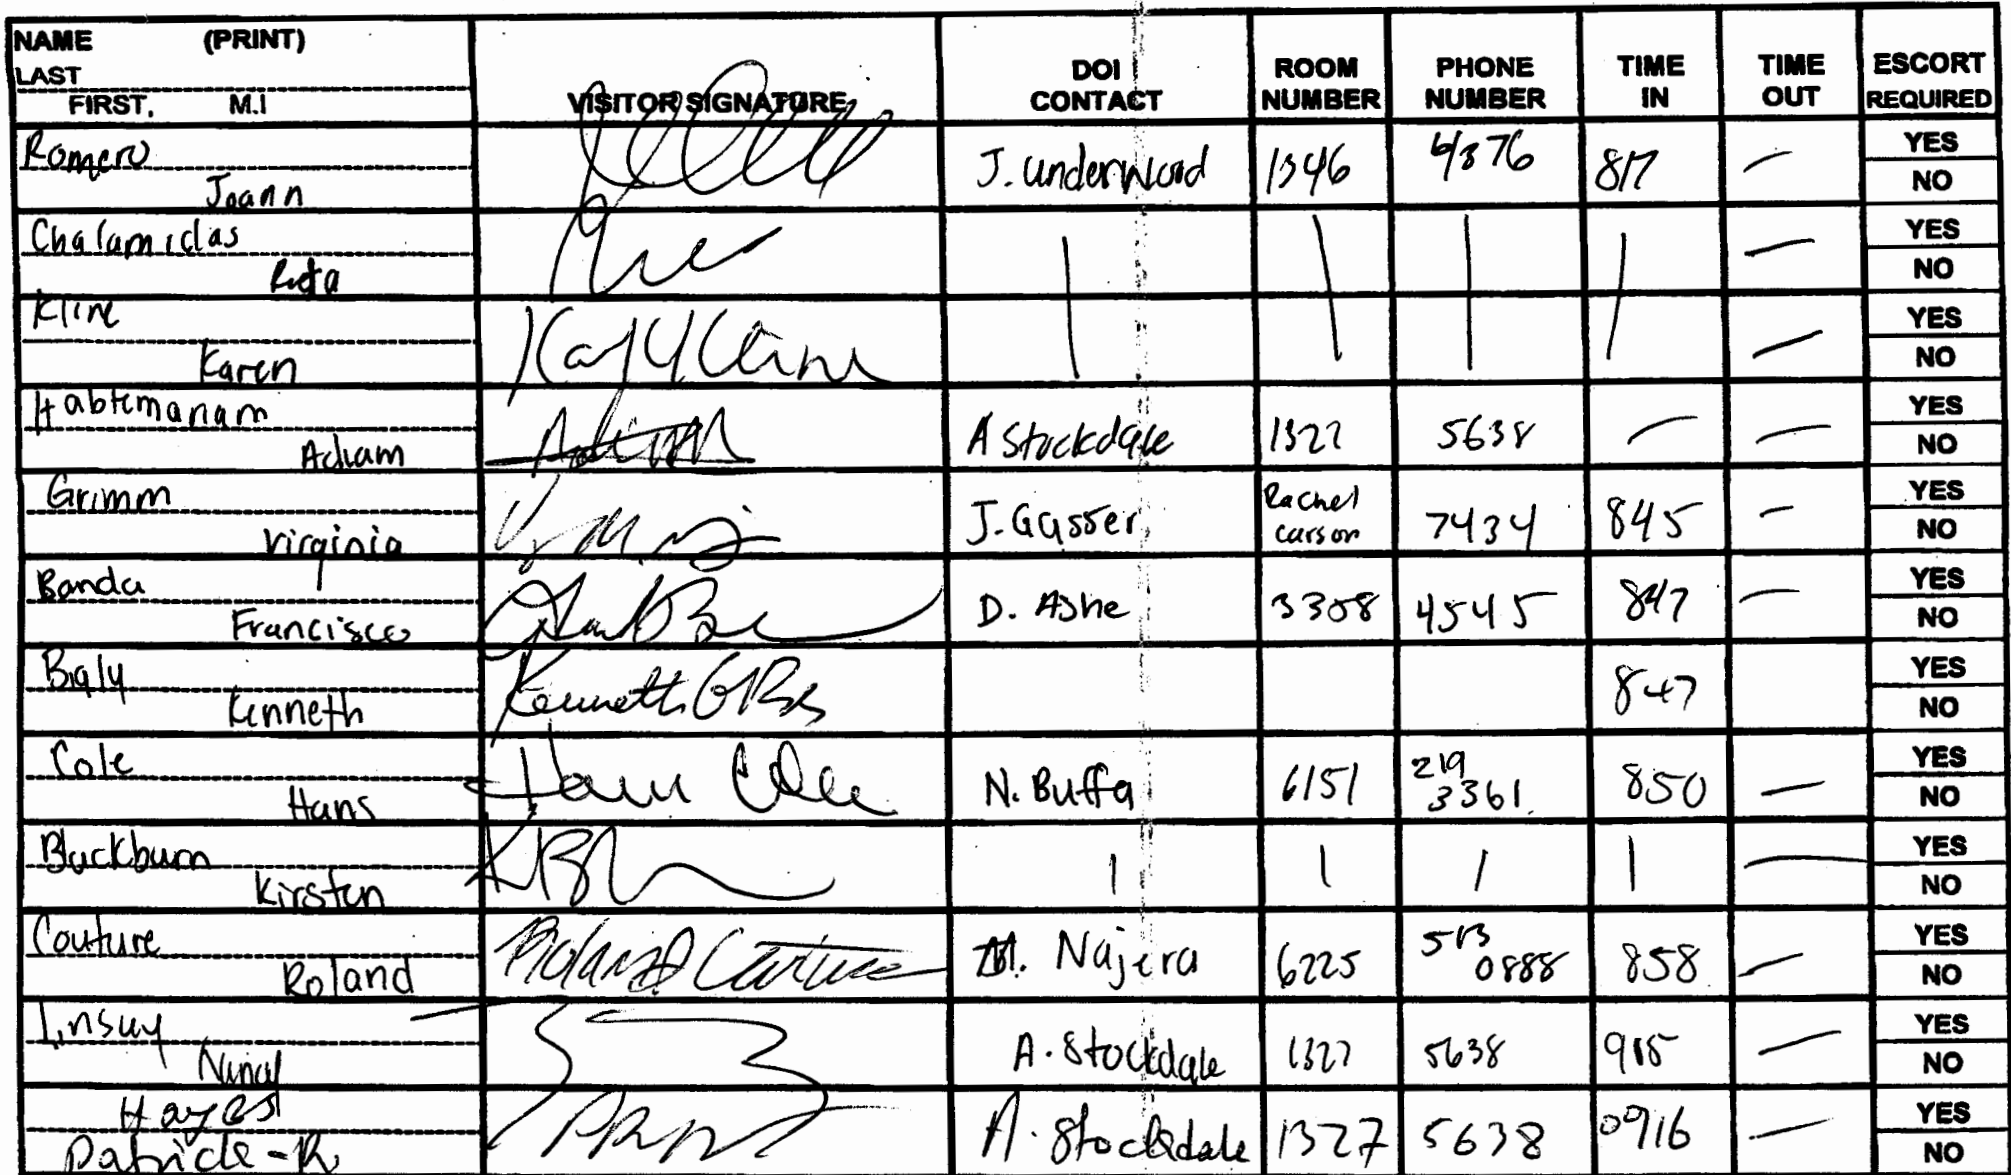 NAME (PRINT)
LAST
FIRST, M.I
VISITOR SIGNATURE
DOI CONTACT
ROOM NUMBER
PHONE NUMBER
TIME IN
TIME OUT
ESCORT REQUIRED
Romero
Joann
J. Underwood 1346 4376 817 — YES
NO
Chalamidas
— YES
NO
Kline
Karen
— YES
NO
Habtemariam
Adiam
A Stockdale 1327 5638 — — YES
NO
Grimm
Virginia
J. Gasser Rachel Carson 7434 845 — YES
NO
Banda
Francisco
D. Ashe 3308 4545 847 — YES
NO
Kenneth
Kenneth
847 YES
NO
Cole
Hans
Hans Cole
N. Buffa 6151 219 3361 850 — YES
NO
Blackburn
Kirsten
— YES
NO
Couture
Roland
Roland Couture
M. Najera 6225 513 0888 858 — YES
NO
Nancy
A. Stockdale 1327 5638 915 — YES
NO
Hayes
Patrick-R
A. Stockdale 1327 5638 0916 — YES
NO